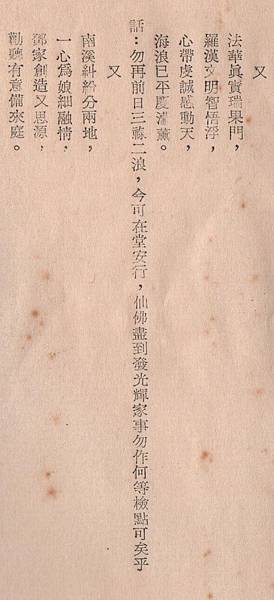 又
法華眞實瑞果門，
羅漢文明智悟浮，
心帶虔誠感動天，
海浪已平慶
話：勿再前日三藤二浪，今可在堂安行，仙佛盡到發光輝家事勿作何等檢點可矣乎
又
南溪糾紛分兩地，
一心爲娘細融情，
鄧家創造又思源，
勸聽有意備來庭。